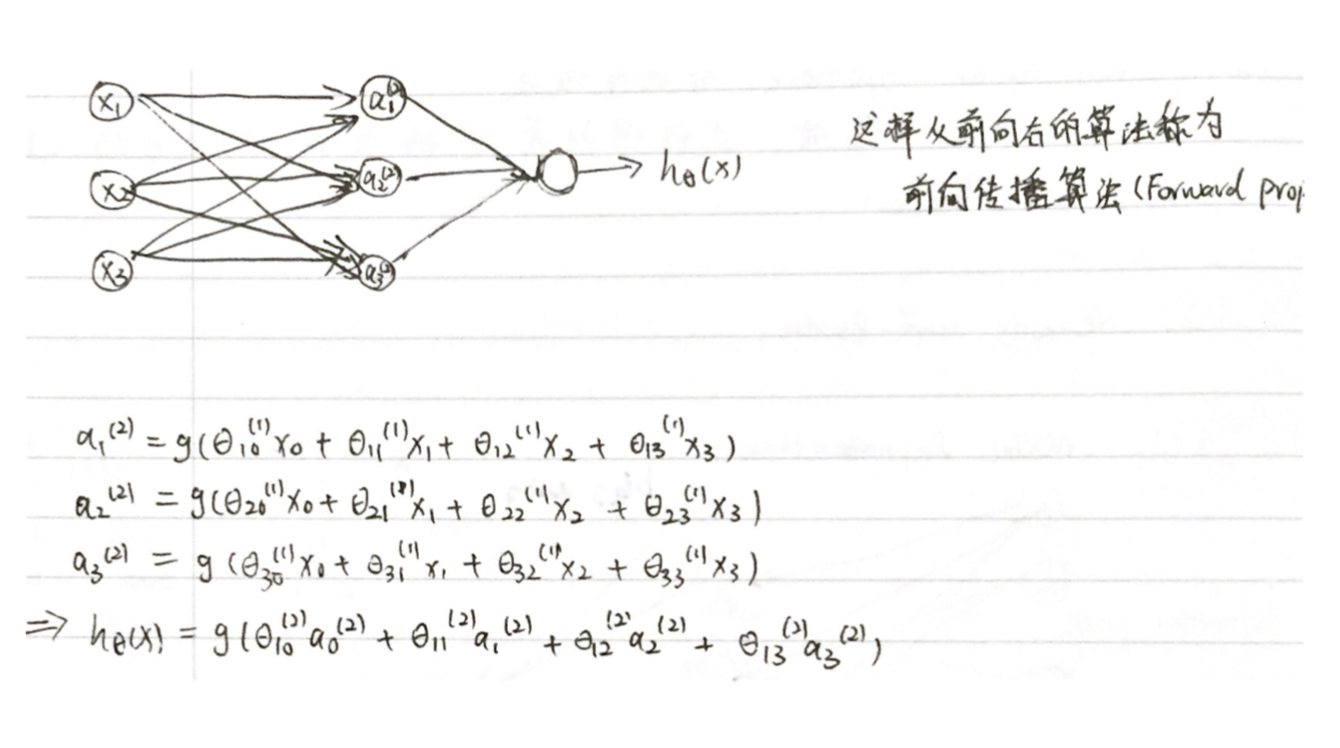 x₁
a₁⁽²⁾
x₂
a₂⁽²⁾
h_θ(x)
x₃
a₃⁽²⁾
这样从前向右的算法称为
前向传播算法(Forward prop
a₁⁽²⁾ = g(θ₁₀⁽¹⁾x₀ + θ₁₁⁽¹⁾x₁ + θ₁₂⁽¹⁾x₂ + θ₁₃⁽¹⁾x₃)
a₂⁽²⁾ = g(θ₂₀⁽¹⁾x₀ + θ₂₁⁽¹⁾x₁ + θ₂₂⁽¹⁾x₂ + θ₂₃⁽¹⁾x₃)
a₃⁽²⁾ = g(θ₃₀⁽¹⁾x₀ + θ₃₁⁽¹⁾x₁ + θ₃₂⁽¹⁾x₂ + θ₃₃⁽¹⁾x₃)
⇒ h_θ(x) = g(θ₁₀⁽²⁾a₀⁽²⁾ + θ₁₁⁽²⁾a₁⁽²⁾ + θ₁₂⁽²⁾a₂⁽²⁾ + θ₁₃⁽²⁾a₃⁽²⁾)